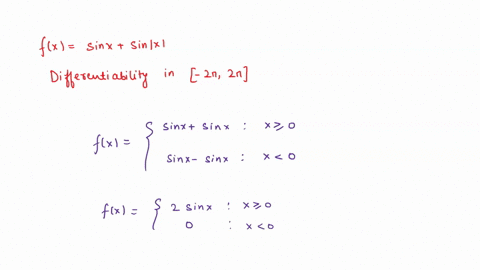 f(x) = sinx + sin|x|
Differentiability in [-2π, 2π]
f(x) = { sinx + sinx : x ≥ 0
sinx - sinx : x < 0
f(x) = { 2 sinx : x ≥ 0
0 : x < 0